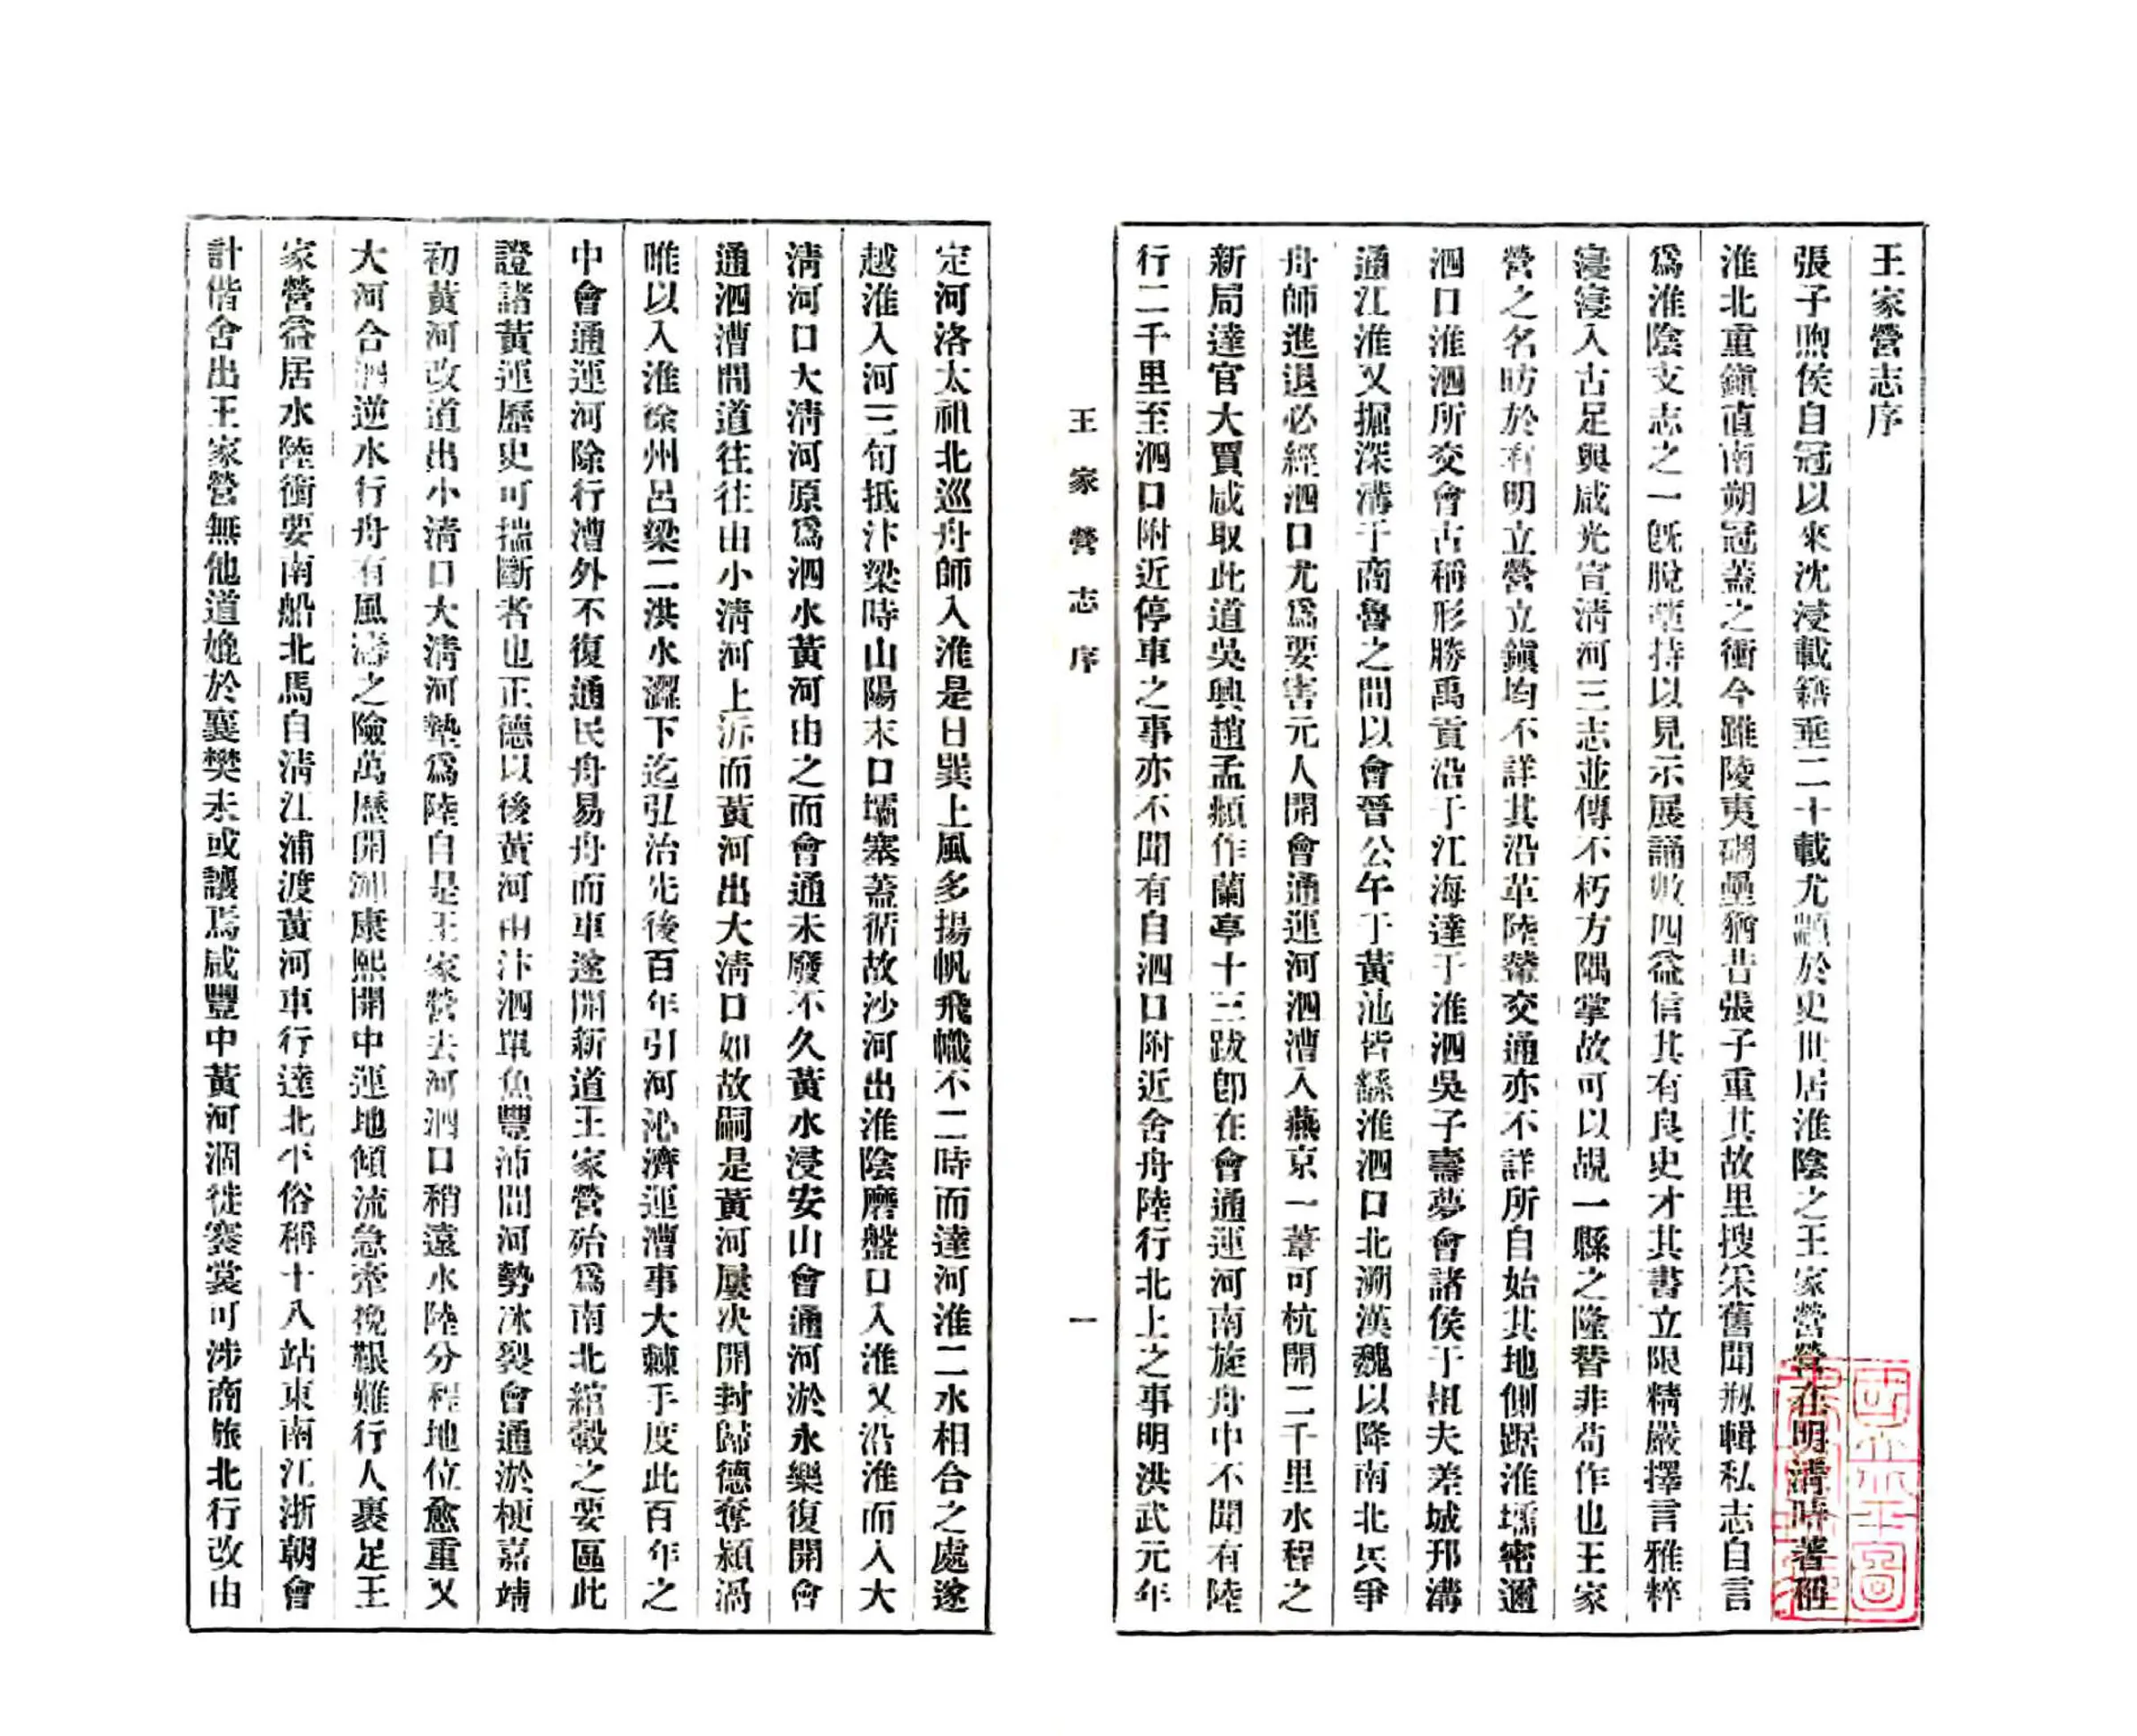 王家營志序
張子煦侯自冠以來沈浸載籍垂二十載尤顓於史世居淮陰之王家營營在明淸時著稱
淮北重鎭直南朔冠蓋之衝今雖陵夷碉壘猶昔張子重其故里搜采舊聞剏輯私志自言
爲淮陰支志之一旣脫草持以見示展誦數四益信其有良史才其書立限精嚴擇言雅粹
寖寖入古足與咸光宣淸河三志並傳不朽方隅掌故可以覘一縣之隆替非苟作也王家
營之名昉於有明立營立鎭均不詳其沿革陸輦交通亦不詳所自始其地側踞淮壖密邇
泗口淮泗所交會古稱形勝禹貢沿于江海達于淮泗吳子壽夢會諸侯于柤夫差城邗溝
通江淮又掘深溝于商魯之間以會晉公午于黃池皆繇淮泗口北溯漢魏以降南北兵爭
舟師進退必經泗口尤爲要害元人開會通運河泗漕入燕京一葦可杭開二千里水程之
新局達官大賈咸取此道吳興趙孟頫作蘭亭十三跋卽在會通運河南旋舟中不聞有陸
行二千里至泗口附近停車之事亦不聞有自泗口附近舍舟陸行北上之事明洪武元年
王家營志序
一
定河洛太祖北巡舟師入淮是日巽上風多揚帆飛幟不二時而達河淮二水相合之處遂
越淮入河三旬抵汴梁時山陽末口壩塞蓋循故沙河出淮陰磨盤口入淮又沿淮而入大
淸河口大淸河原爲泗水黃河由之而會通未廢不久黃水浸安山會通河淤永樂復開會
通泗漕間道往往由小淸河上泝而黃河出大淸口如故嗣是黃河屢決開封歸德奪潁渦
唯以入淮徐州呂梁二洪水澀下迄弘治先後百年引河沁濟運漕事大棘手度此百年之
中會通運河除行漕外不復通民舟易舟而車遂開新道王家營殆爲南北綰轂之要區此
證諸黃運歷史可揣斷者也正德以後黃河由汴泗單魚豐沛間河勢冰裂會通淤梗嘉靖
初黃河改道出小淸口大淸河墊爲陸自是王家營去河泗口稍遠水陸分程地位愈重又
大河合泗逆水行舟有風濤之險萬歷開泇康熙開中運地傾流急牽挽艱難行人裹足王
家營益居水陸衝要南船北馬自淸江浦渡黃河車行達北平俗稱十八站東南江浙朝會
計偕舍出王家營無他道娩於襄樊未或讓焉咸豐中黃河涸徙褰裳可涉商旅北行改由